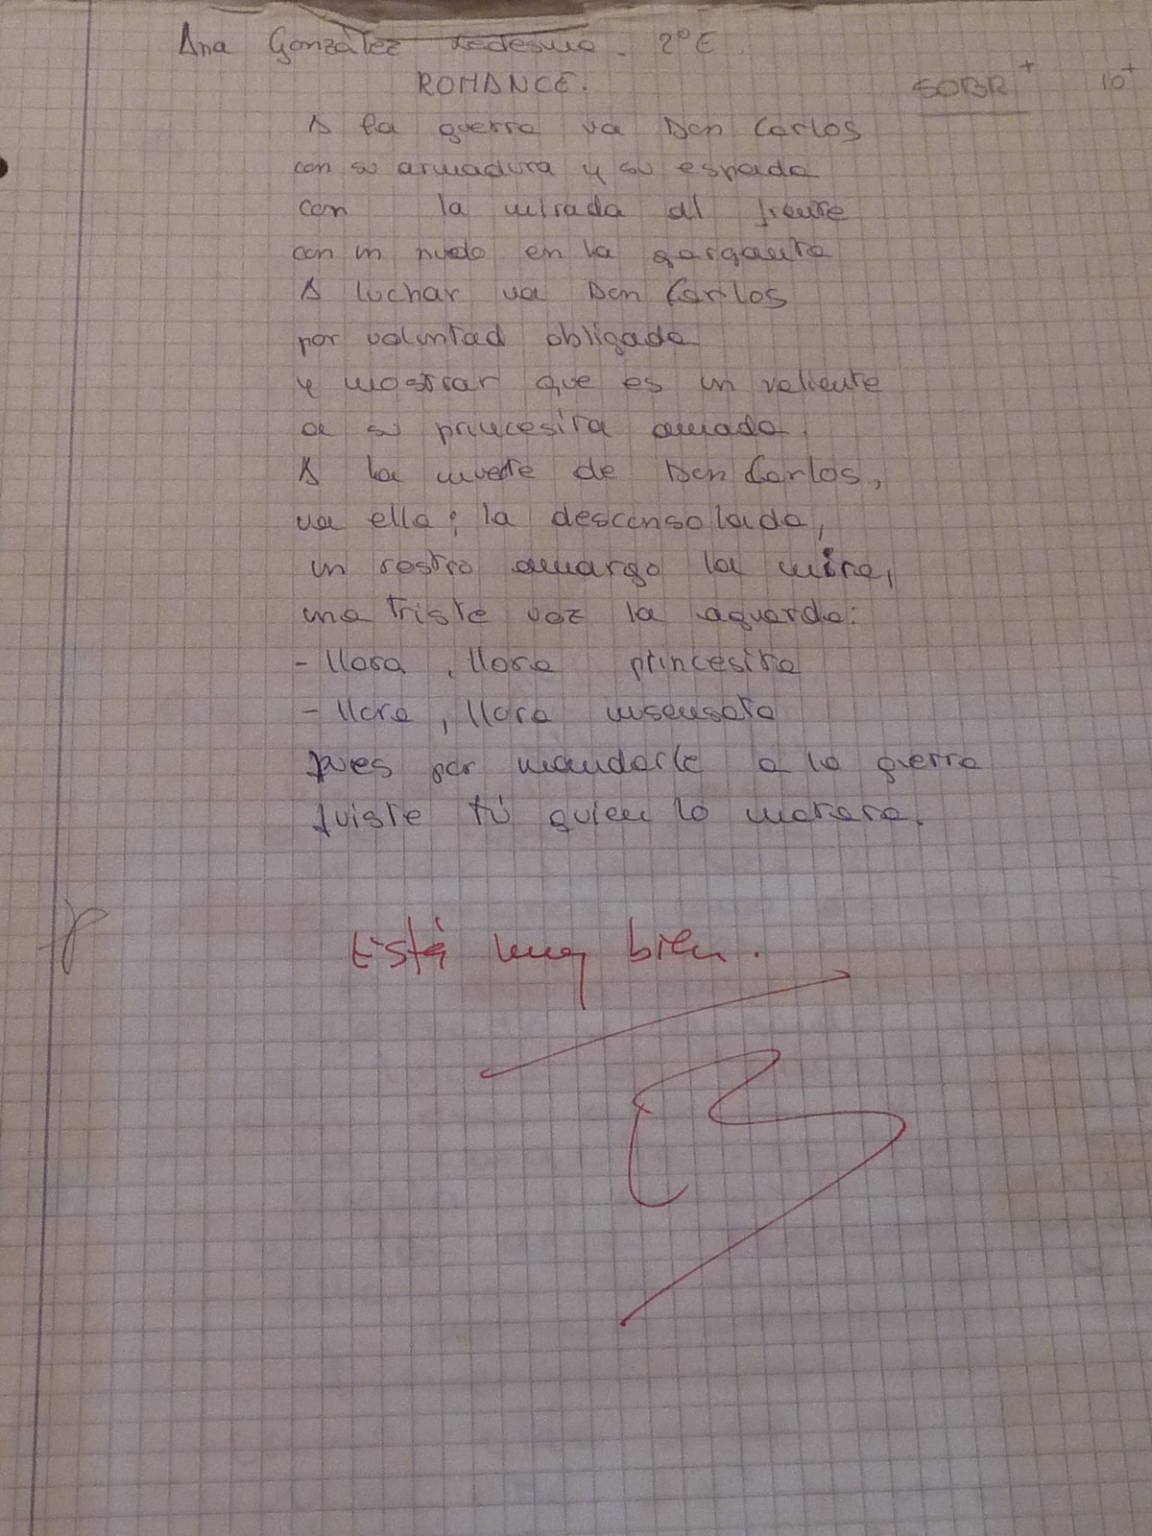 Ana González Ledesma. 2ºE.
ROMANCE.
SOBR+ 10+
A la guerra va Don Carlos
con su armadura y su espada
con la mirada al frente
con un nudo en la garganta
A luchar va Don Carlos
por voluntad obligada
y mostrar que es un valiente
a su princesita amada.
A la muerte de Don Carlos,
va ella; la desconsolada,
un rostro amargo la mira,
una triste voz la aguarda:
- llora, llora princesita
- llora, llora insensata
pues por mandarle a la guerra
fuiste tú quien lo matara.
Está muy bien.